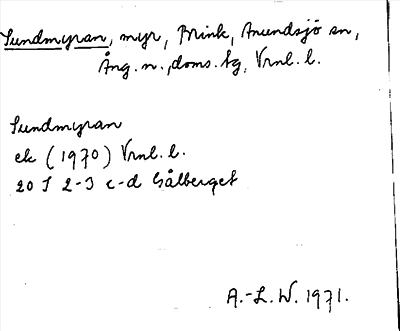 Sundmyran, myr, Brink, Anundsjö sn,
Ång. n., doms. tg, Vrnl. l.
Sundmyran
ek (1970) Vrnl. l.
20 I 2-3 c-d Gålberget
A.-L. W. 1971.